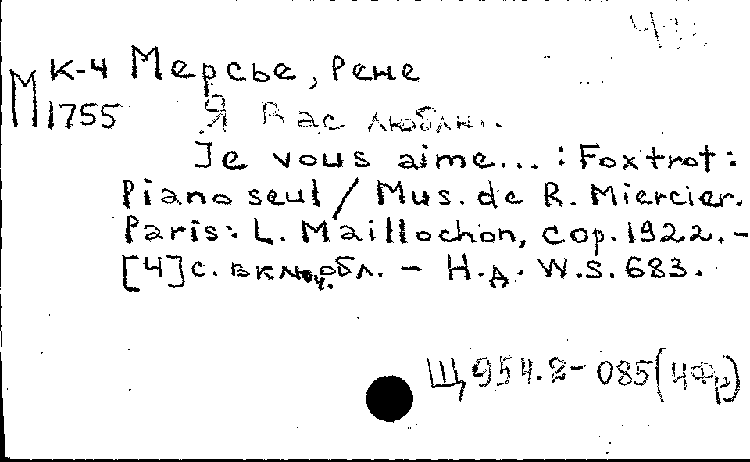 М К-4 Мерсье, Рене
1755 Я Вас люблю..
Je vous aime... : Foxtrot :
Piano seul / Mus. de R. Miercier.
Paris: L. Maillochon, cop. 1922. -
[4] с. включ. обл. - Н.д. W.S. 683.
Щ 954.2-085(4Фр)